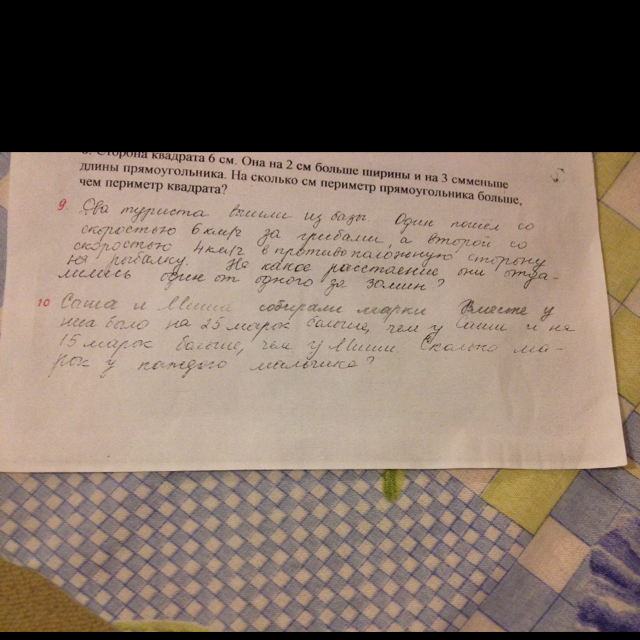 8. Сторона квадрата 6 см. Она на 2 см больше ширины и на 3 смменьше
длины прямоугольника. На сколько см периметр прямоугольника больше,
чем периметр квадрата?
9. Два туриста вышли из базы. Один пошёл со
скоростью 6 км/ч за грибами, а второй со
скоростью 4 км/ч в противоположеную сторону
на рыбалку. На какое расстояние они отда-
лились один от одного за 30 мин?
10 Саша и Миша собирали марки Вместе у
них было на 25 марок больше, чем у Саши и на
15 марок больше, чем у Миши Сколько ма-
рок у каждого мальчика?